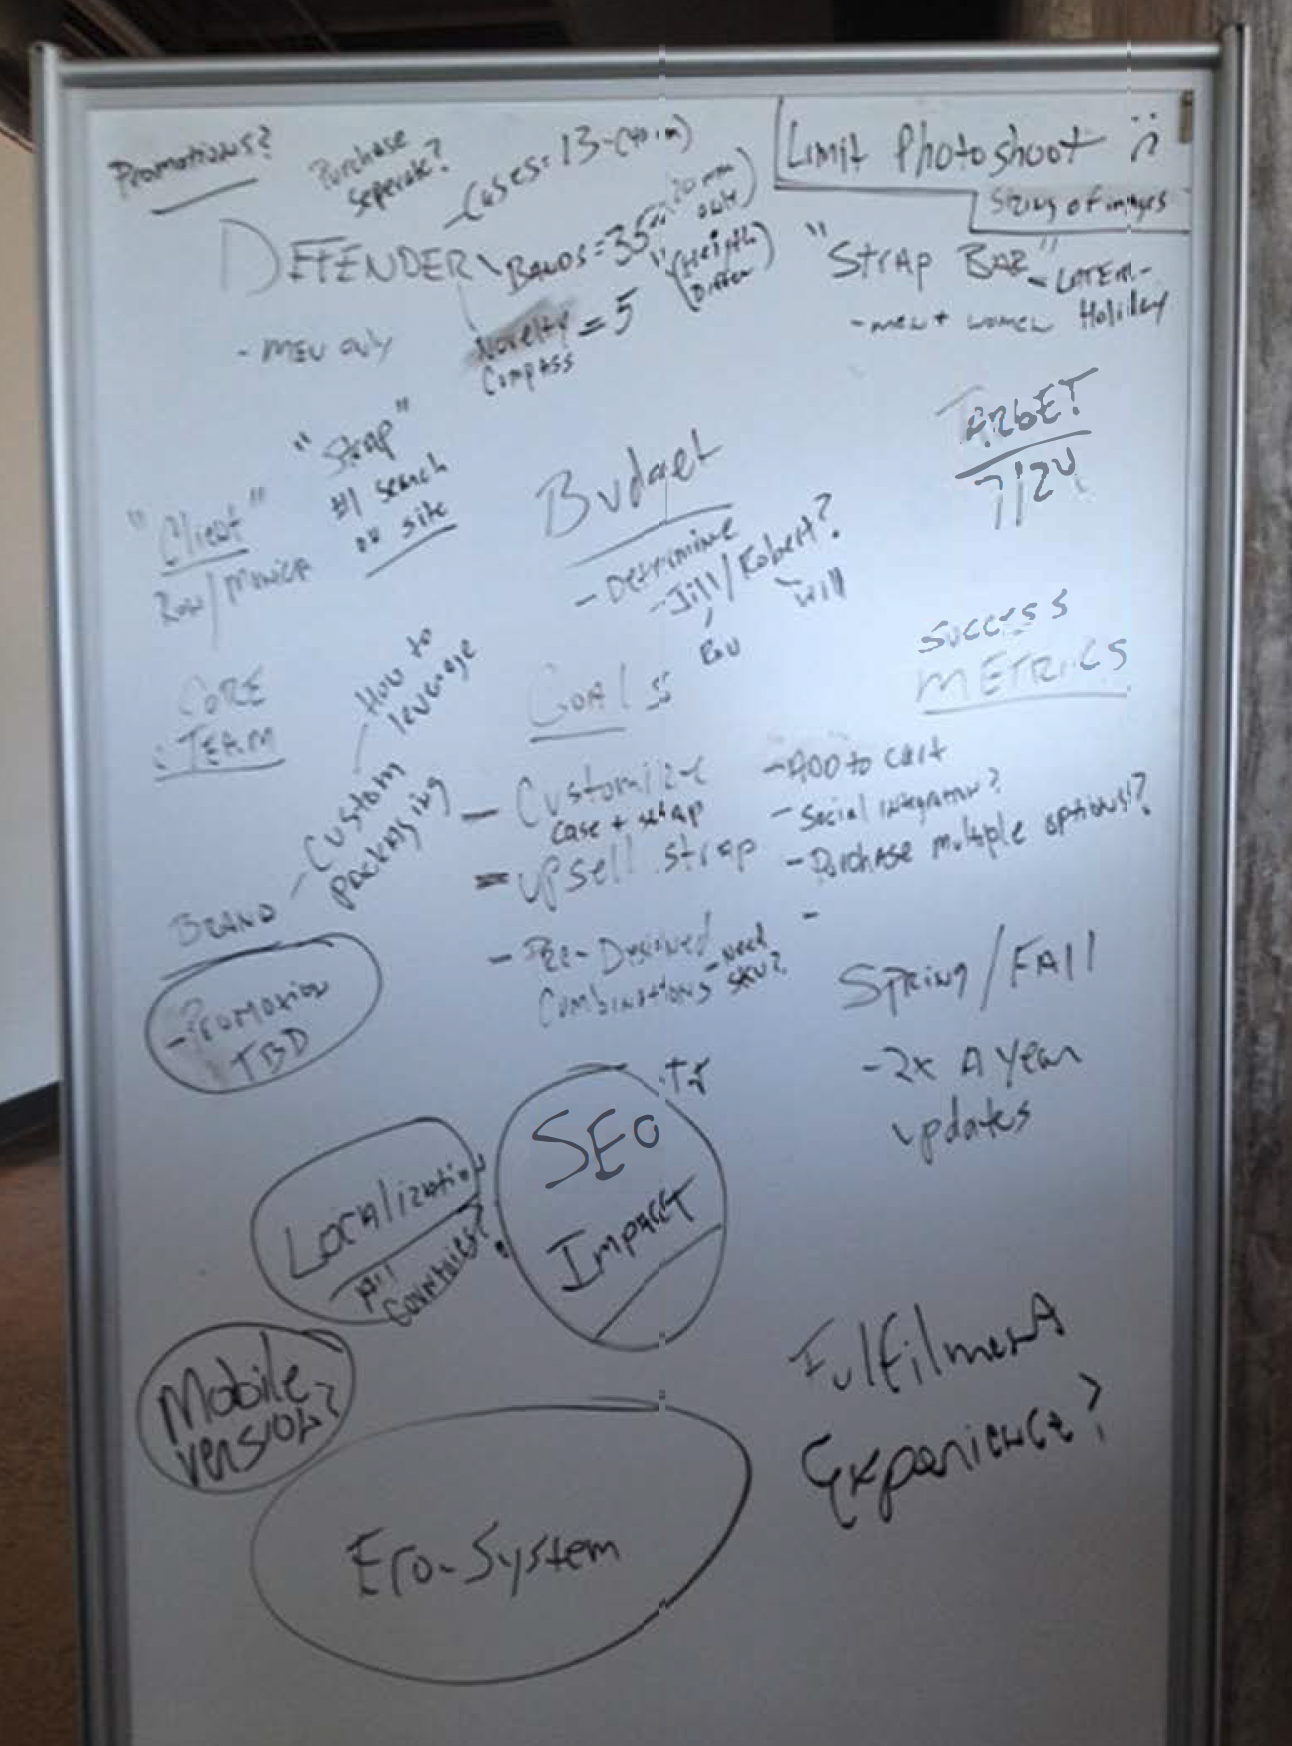 Promotions?
Purchase
Seperate?
Cases = 13
Limit Photoshoot
Sizing of images
DEFENDER
Bands = 35
(20mm
only)
(Height
Differ)
"Strap Bar"
- LATER -
Holiday
- men + women
- men only
Novelty = 5
Compass
"Strap"
#1 search
on site
"Client"
Ron/Monica
Budget
- Determine
- Jill/Robert?
Will
TARGET
7/24
CORE
TEAM
How to
leverage
Custom
Packaging
BRAND
- Promotion
TBD
GOALS
- Customize
case + strap
- upsell strap
- Pre-Desined
Combinations - need
SKU?
SUCCESS
METRICS
- ADD to cart
- Social integration?
- Purchase multiple options!?
-
Spring/FAll
- 2x A year
updates
SEO
Impact
Localization
All
Countries?
Mobile
version?
Ero-System
Fulfilment
Experience?